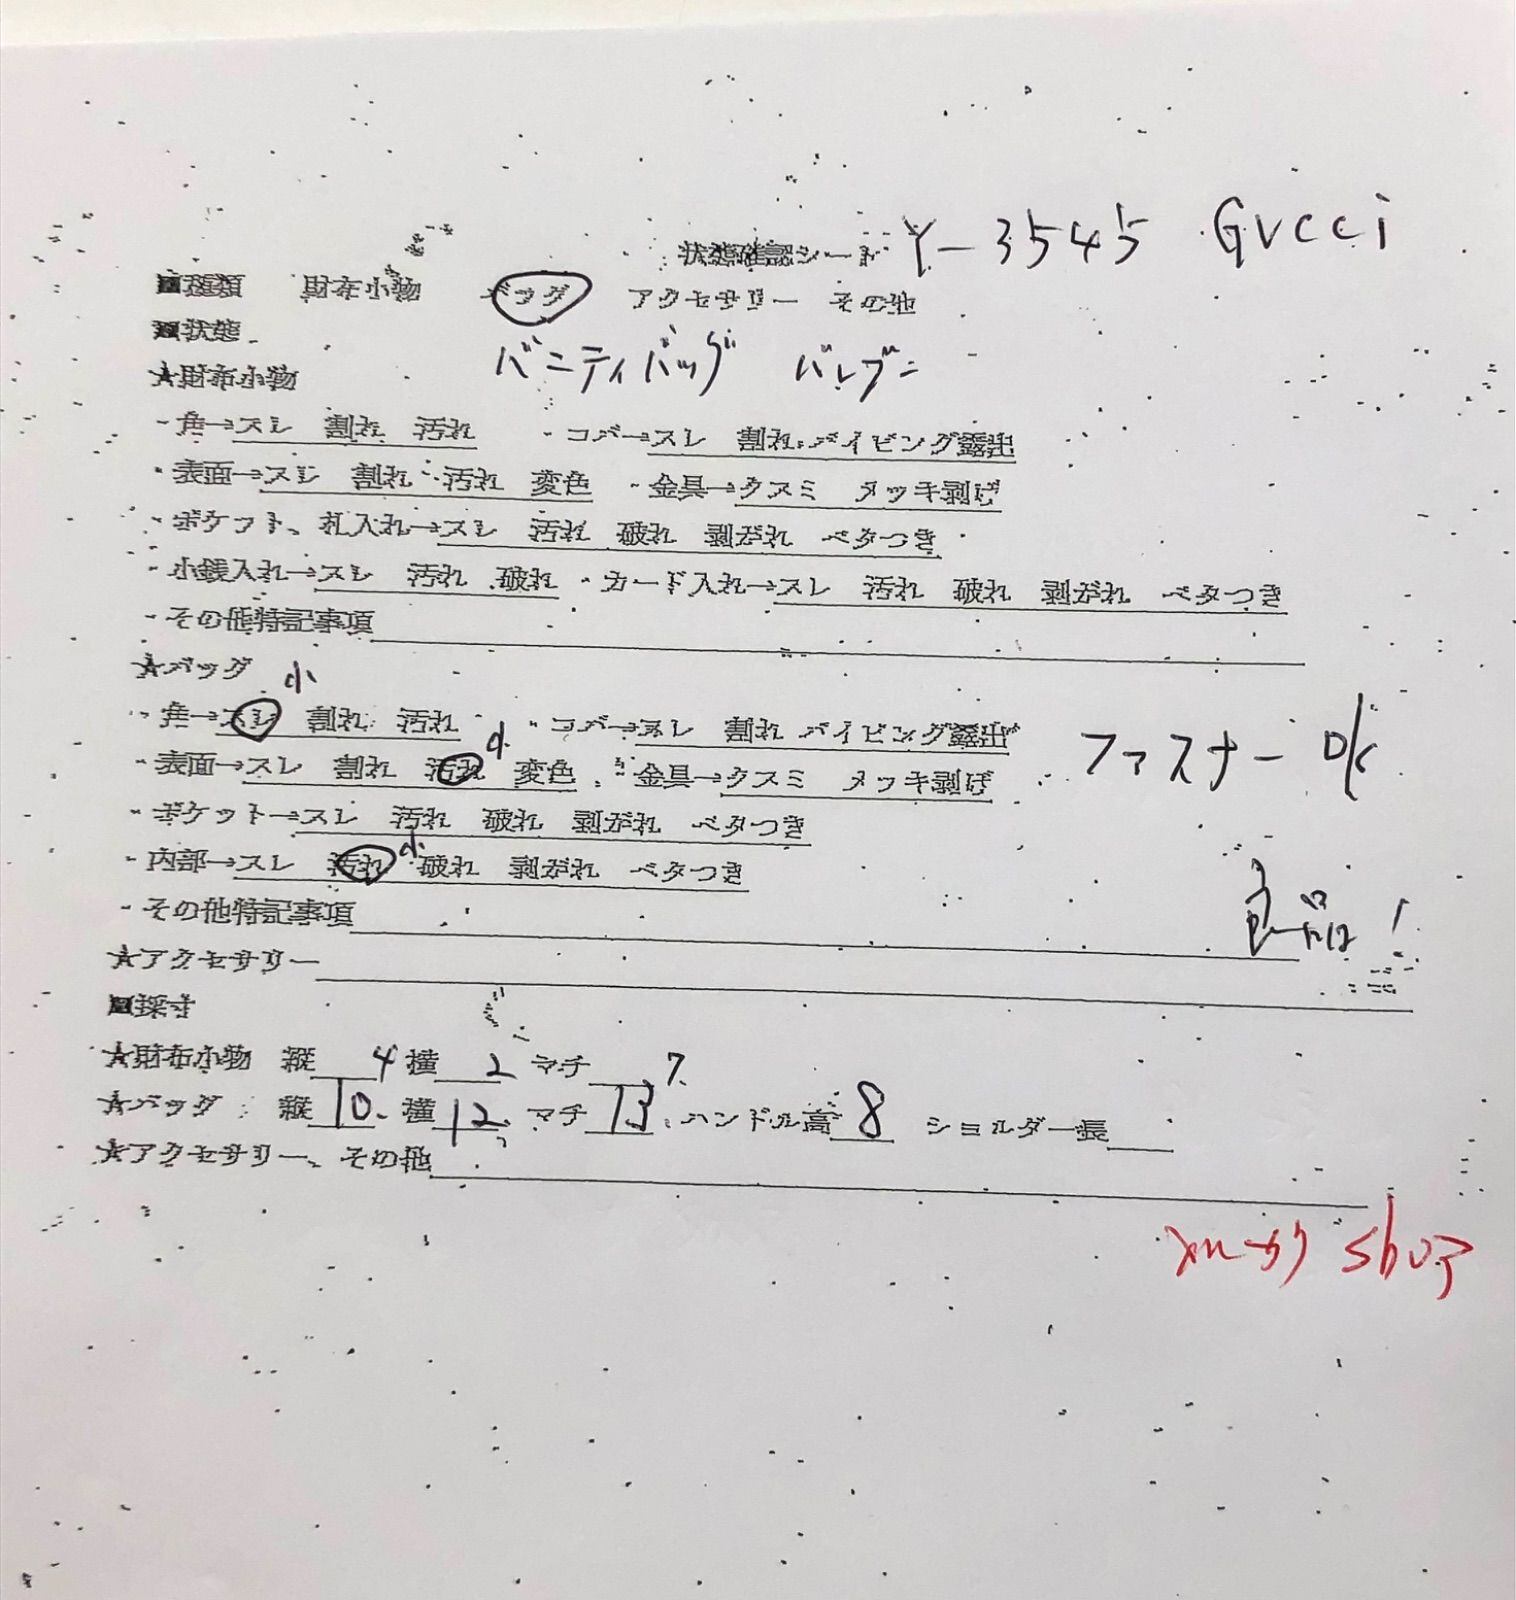 状態確認シート Y-3545 GUCCI
■種類 財布小物 バッグ アクセサリー その他
■状態
バニティバッグ バンブー
★財布小物
・角→スレ 割れ 汚れ ・コバ→スレ 割れ パイピング露出
・表面→スレ 割れ 汚れ 変色 ・金具→クスミ メッキ剥げ
・ポケット、札入れ→スレ 汚れ 破れ 剥がれ ベタつき
・小銭入れ→スレ 汚れ 破れ ・カード入れ→スレ 汚れ 破れ 剥がれ ベタつき
・その他特記事項
★バッグ
小
・角→スレ 割れ 汚れ ・コバ→スレ 割れ パイピング露出
・表面→スレ 割れ 汚れ 小 変色 ・金具→クスミ メッキ剥げ
ファスナー OK
・ポケット→スレ 汚れ 破れ 剥がれ ベタつき
・内部→スレ 汚れ 小 破れ 剥がれ ベタつき
・その他特記事項
★アクセサリー
■採寸
★財布小物 縦 4 横 2 マチ 7
★バッグ 縦 10 横 12 マチ 13 ハンドル高 8 ショルダー長
★アクセサリー、その他